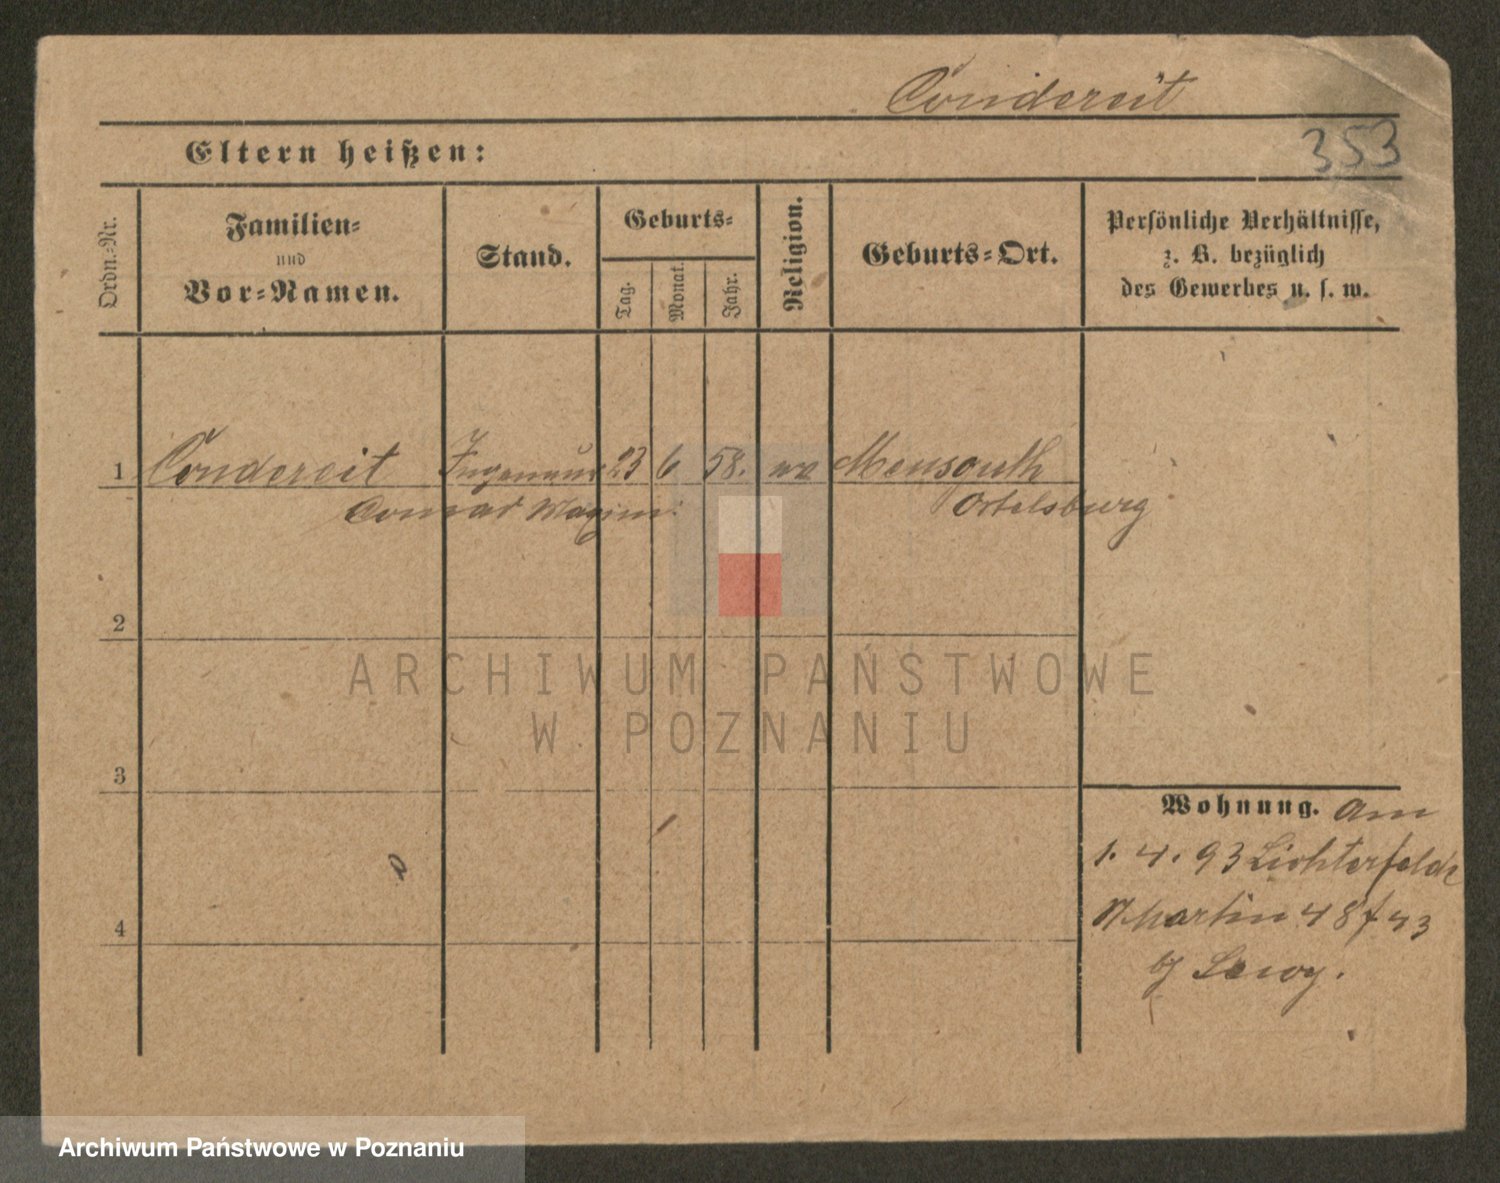 Condereit
353
Eltern heißen:
Ordn.-Nr.
Familien-
und
Vor-Namen.
Stand.
Geburts-
Tag.
Monat.
Jahr.
Religion.
Geburts-Ort.
Persönliche Verhältnisse,
z. B. bezüglich
des Gewerbes u. s. w.
1 Condereit Ingenieur 23 6 58. ev Mensguth
Conrad Ortelsburg
2
ARCHIWUM PAŃSTWOWE
W POZNANIU
3
Wohnung. am
1. 4. 93 Lichterfelde
Martin 48
4
Archiwum Państwowe w Poznaniu